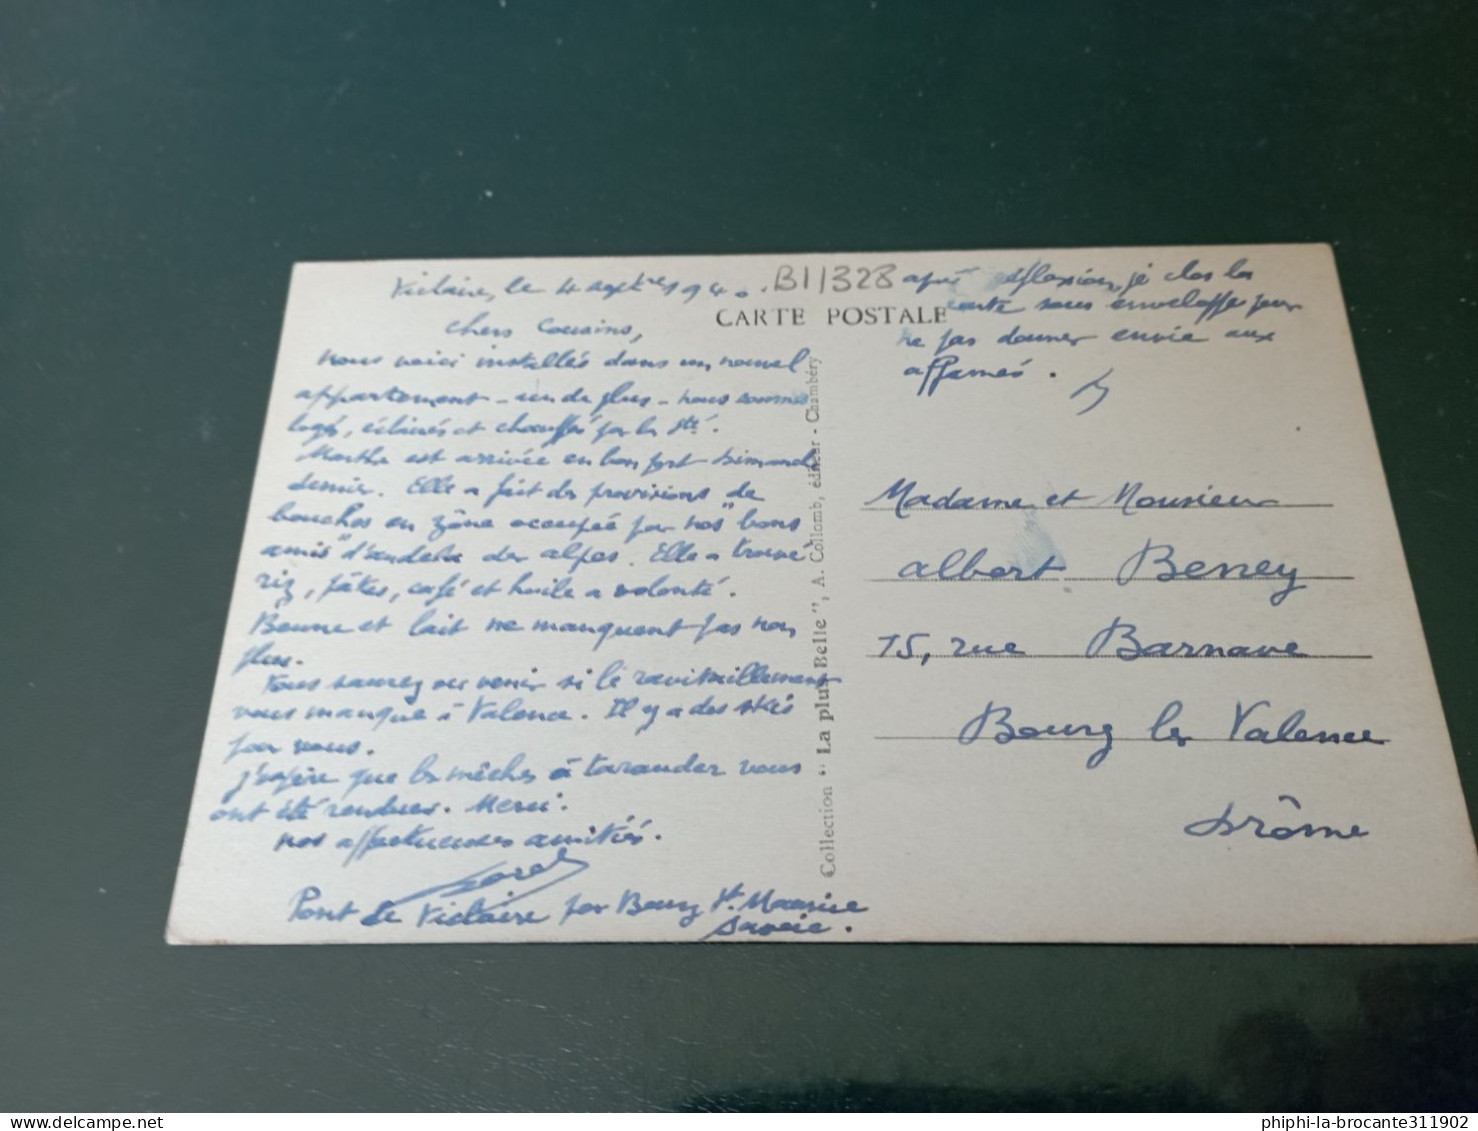 Viclaire, le 4 septbre 1940.
Chers Cousins,
nous voici installés dans un nouvel
appartement - un de plus - nous sommes
logés, éclairés et chauffés par la Sté.
Marthe est arrivée en bon port dimanche
dernier. Elle a fait des provisions de
bouches en zône occupée par nos "bons
amis" d'au delà des alpes. Elle a trouvé
riz, pâtes, café et huile a volonté.
Beurre et lait ne manquent pas non
plus.
Vous saurez où venir si le ravitaillement
vous manque à Valence. Il y a des skis
pour vous.
J'espère que les mèches à tarauder vous
ont été rendues. Merci.
nos affectueuses amitiés.
Pont de Viclaire par Bourg St Maurice
Savoie.
B11328
CARTE POSTALE
après réflexion, je clos la
carte sous enveloppe pour
ne pas donner envie aux
affamés.
Collection "La plus Belle", A. Collomb, éditeur - Chambéry
Madame et Monsieur
albert Beney
15, rue Barnave
Bourg les Valence
Drôme
phiphi-la-brocante311902